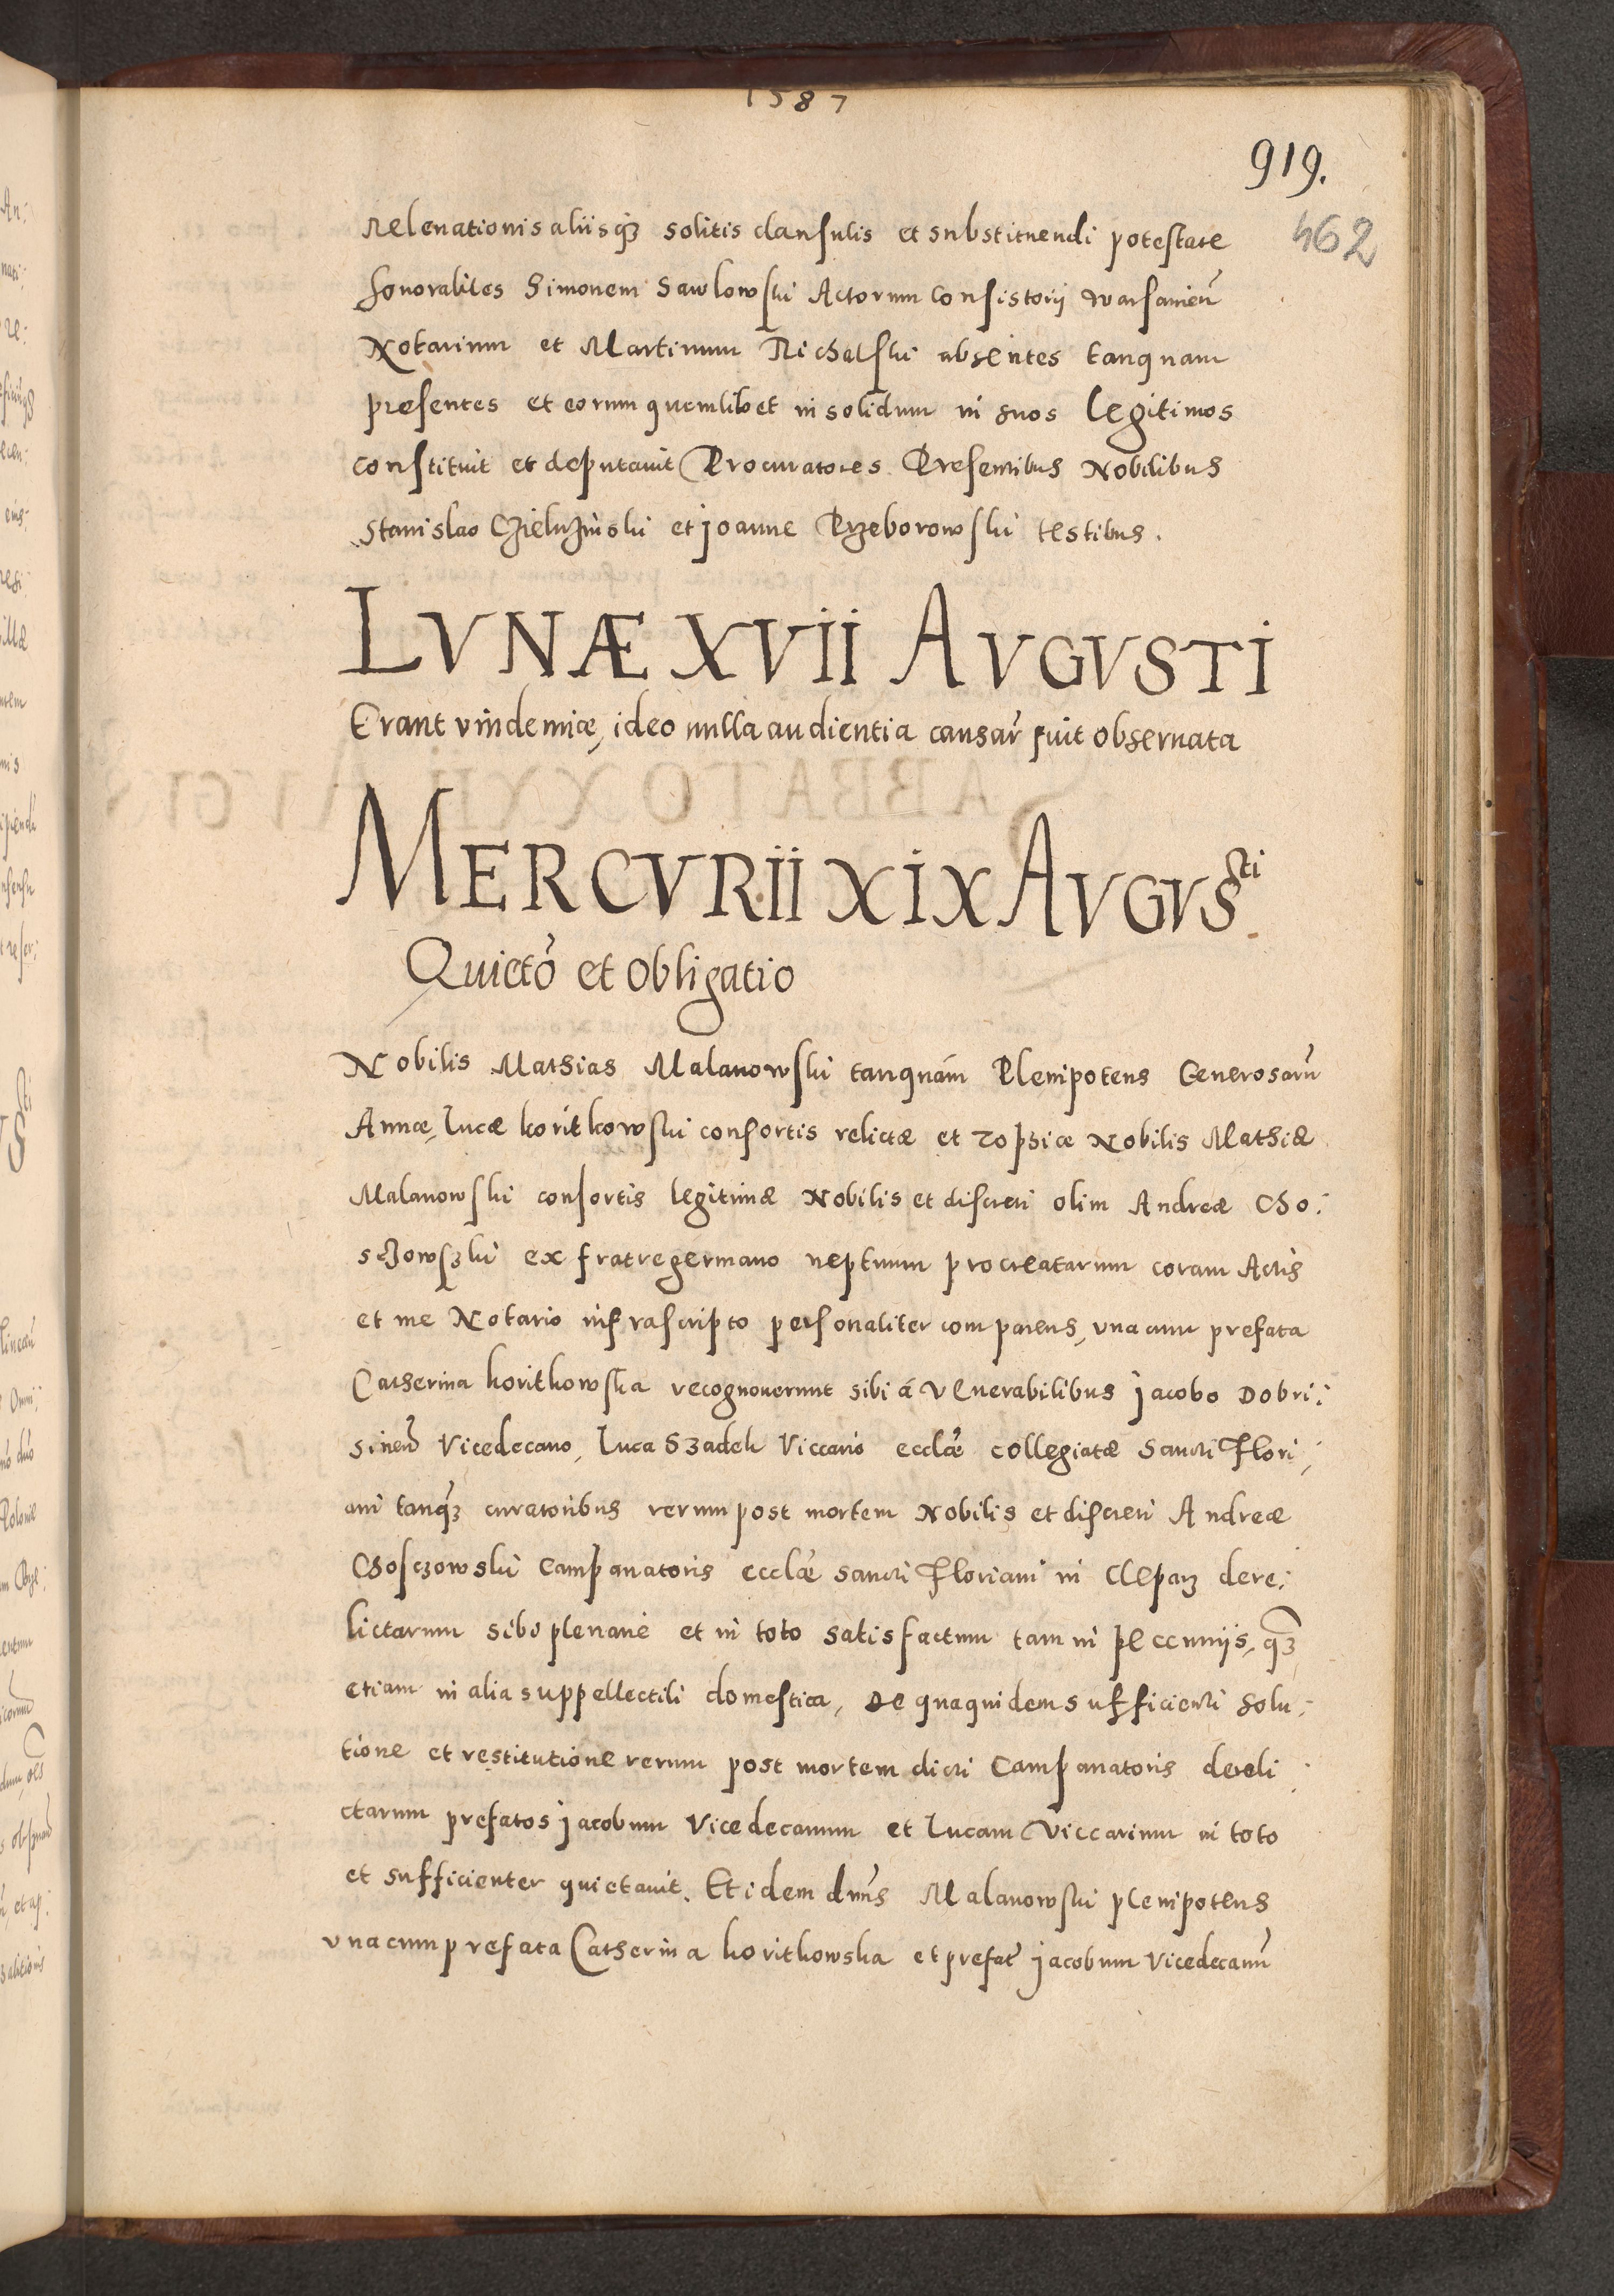 1587
919.
462
Releuationis aliisqȝ solitis clausulis et substituendi potestate
honorabiles Simonem Sawlowski Actorum Consistorij Warsauień
Notarium et Martinum Richalski absentes tanquam
presentes et eorum quemlibet in solidum in suos Legitimos
constituit et deputauit Procuratores. Presentibus Nobilibus
Stanislao et Joanne testibus.
LVNÆ XVII AVGVSTI
Erant vindemiæ, ideo nulla audientia causar̃ fuit obseruata
MERCVRII XIX AVGVSti
Quietõ et obligatio
Nobilis Mathias Malanowski tanquam Plenipotens Generosarũ
Annæ, Lucæ korithkowski consortis relictæ et Zophiæ Nobilis Mathiæ
Malanowski consortis legitimæ Nobilis et discreti olim Andreæ Cho:
sczowski ex fratre germano neptuum procreatarum coram Actis
et me Notario infrascripto personaliter comparens, vna cum prefata
Catherina korithowska recognouerunt sibi á Venerabilibus Jacobo Dobri:
sineñ Vicedecano, Luca Szadek Viccario ecclæ̃ collegiatæ Sancti Flori,
ani tanqȝ curatoribus rerum post mortem Nobilis et discreti Andreæ
Chosczowski Campanatoris ecclæ̃ sancti Floriani in Cleparz dere:
lictarum sibi plenarie et in toto satisfactum tam in peccunijs, qȝ
etiam in alia suppellectili domestica, De qua quidem sufficienti solu,
tione et restitutione rerum post mortem dicti Campanatoris dereli
ctarum prefatos Jacobum Vicedecanum et Lucam Viccarium in toto
et sufficienter quietauit. Et idem dnũs Malanowski plenipotens
vna cum prefata Catherina korithkowska et prefat̃ Jacobum Vicedecanũ